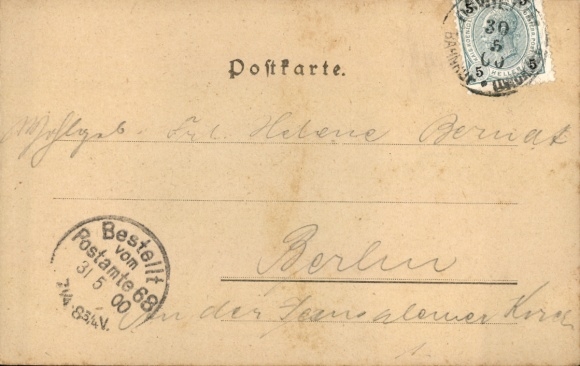 30
5
00
5 HELLER 5
Postkarte.
Wohlgeb. Frl. Helene Berndt
Berlin
An der Jerusalemer Kirch
Bestellt
vom
Postamte 68
31 5 00
7¼-8¾V.